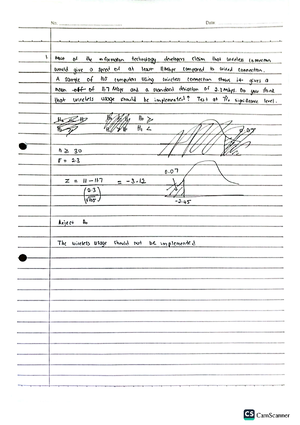 No.
Date
1 Most of the information technology developers claim that wireless connection
would give a speed of at least Mbps compared to wired connection.
A sample of computers using wireless connection shows it gives a
mean of 11.7 Mbps and a standard deviation of 2.3 Mbps. Do you think
that wireless usage should be implemented? Test at significance level.
H₀ >
H₁ <
n ≥ 30
= 2.3
0.07
Z = 11 - 11.7 = -3.12
2.3
-2.05
Reject H₀
The wireless usage should not be implemented
CS CamScanner